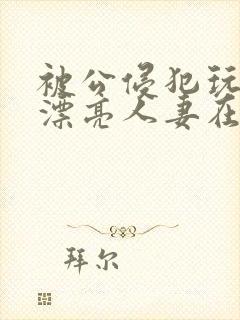 被公侵犯玩
漂亮人妻在
拜尔